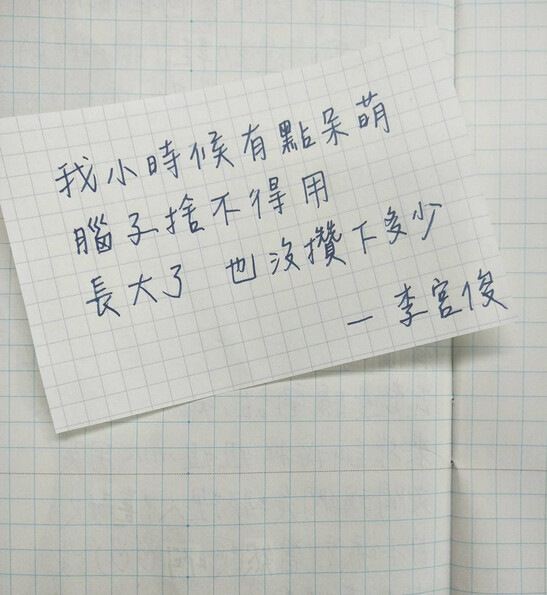 我小時候有點呆萌
腦子捨不得用
長大了 也沒攢下多少
— 李宮俊